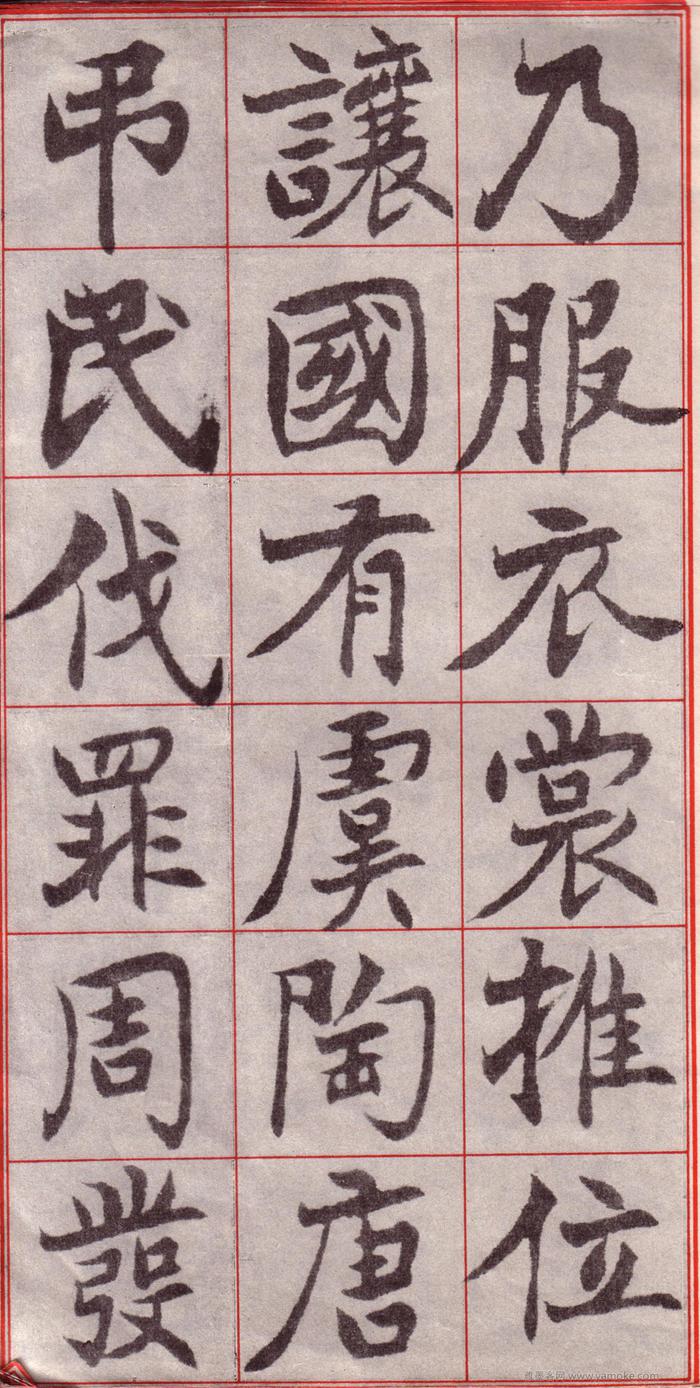 乃服衣裳推位
讓國有虞陶唐
弔民伐罪周發
雅墨客网 www.yamoke.com